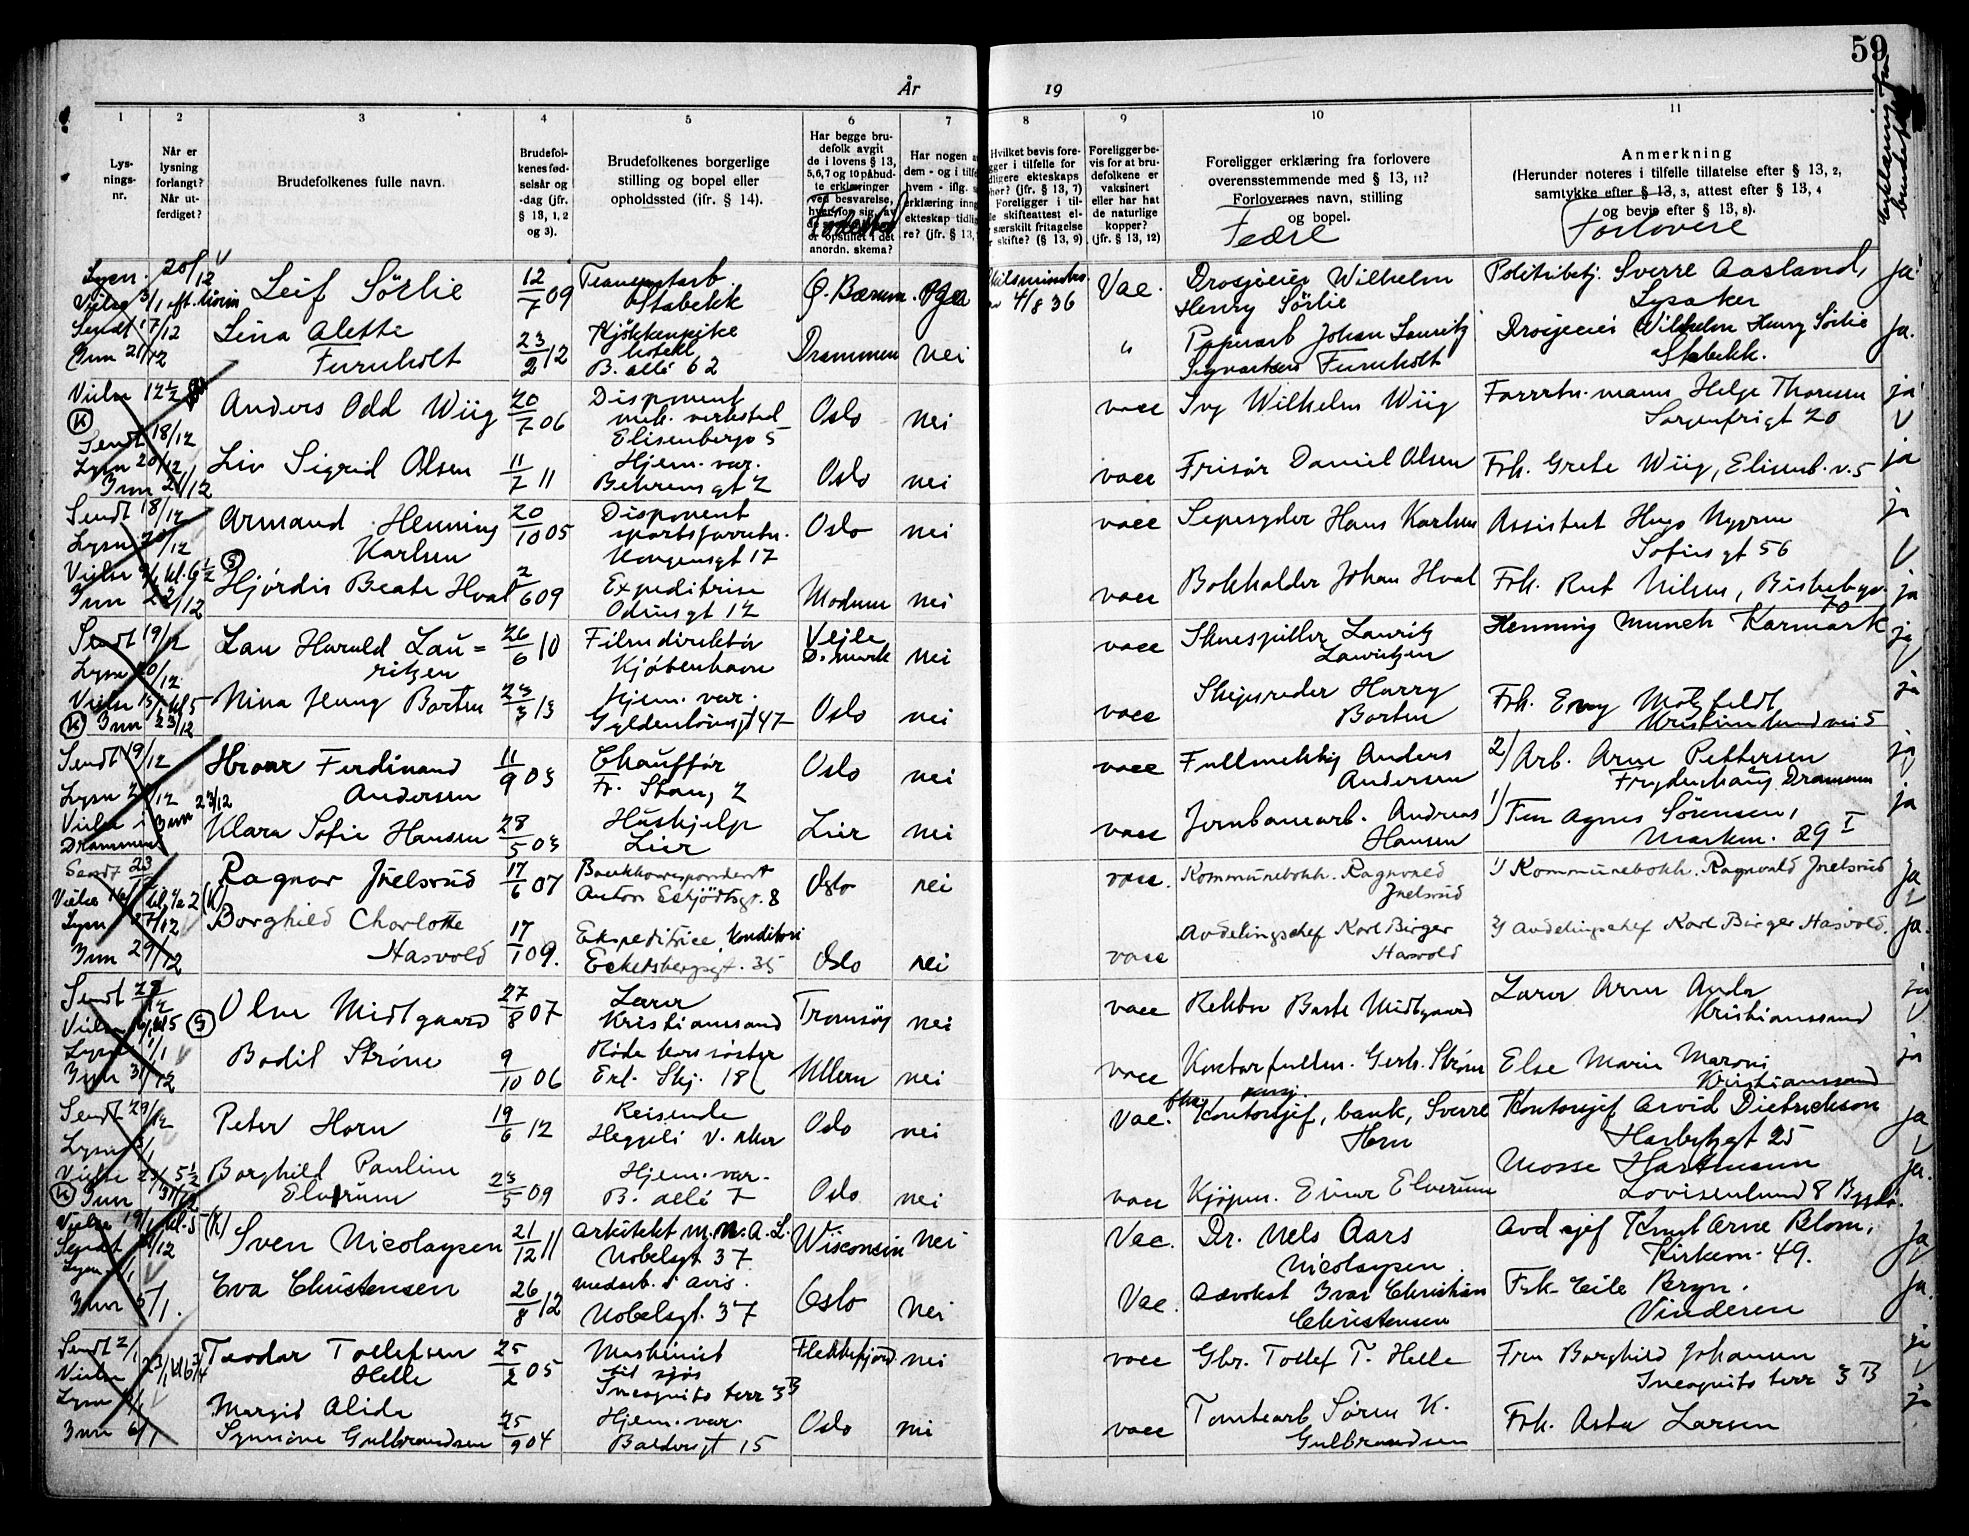 59
År 19
1 2 3 4 5 6 7 8 9 10 11
Lys-
nings-
nr.
Når er
lysning
forlangt?
Når ut-
ferdiget?
Brudefolkenes fulle navn.
Brudefol-
kenes fød-
selsår og
-dag (jfr.
§ 13, 1, 2
og 3).
Brudefolkenes borgerlige
stilling og bopel eller
opholdssted (jfr. § 14).
Har begge bru-
defolk avgit
de i lovens § 13,
5,6,7 og 10 påbud-
te erklæringer
ved besvarelse,
anordn. skema?
Fødested
Har nogen
dem - og i
hvem - iflg.
erklæring
ekteskap
re? (jfr. § 13,
Hvilket bevis fore-
ligger i tilfelle for
tidligere ekteskaps
ophør? (jfr. § 13, 7)
Foreligger i til-
felle skifteattest el-
ler særskilt fritagelse
for skifte? (§ 13, 9)
Foreligger be-
vis for at bru-
defolkene er
vaksinert
eller har hat
de naturlige
kopper?
(jfr. § 13, 12)
Foreligger erklæring fra forlovere
overensstemmende med § 13, 11?
Forlovernes navn, stilling
og bopel.
Fedre
Anmerkning
(Herunder noteres i tilfelle tillatelse efter § 13, 2,
samtykke efter § 13, 3, attest efter § 13, 4
og bevis efter § 13, 8).
Forlovere
Lysn. 20/12
Leif Sörlie 12/7 09
Stabekk
Ø. Bærum
4/8 36 Vac.
Drosjeeier Wilhelm
Henry Sörlie
Politibetj. Sverre Aasland,
Lysaker
ja
Sendt 17/12
Inn 21/12
Lina Alette
Furuholt 23/2 12
Kjökkenpike
hotell
B. allé 62
Drammen nei "
Papirarb Johan Lauritz
Furuholt
Drosjeeier Wilhelm Henry Sörlie
Stabekk.
ja.
Vielse 12 1/2
(K)
Sendt 18/12
Anders Odd Wiig 20/7 06
Disponent
mek. verksted
Elisenbergv 5
Oslo nei vacc
Ing Wilhelm Wiig
Forretn.mann Helge Thoresen
Sorgenfrigt 20
ja
Lysn 20/12
Inn 21/12
Liv Sigrid Olsen 11/7 11
Hjem. var.
Behrensgt 2
Oslo nei vacc
Frisör Daniel Olsen
Frk. Grete Wiig, Elisenb.v. 5
ja
Sendt 18/12
Lysn 20/12
Armand Henning
Karlsen 20/10 05
Disponent
sportsforretn.
Kongensgt 17
Oslo nei vacc
Sepesyder Hans Karlsen
Assistent Hugo Nygren
Sofiesgt 56
ja
(S)
Inn 22/12
Hjördis Beate Hval 2/6 09
Expeditrise
Odinsgt 12
Modum nei vacc
Bokholder Johan Hval
Frk. Rut Nilsen, Biskebyv.
70
ja
Sendt 19/12
Lysn 20/12
Lau Harald Lau=
ritzen 26/6 10
Filmdirektör
Kjöbenhavn
Vejle
D.mark
nei vacc
Skuespiller Lauritz
Lauritzen
Henning Munch Karmark
ja
(K) Inn 23/12
Nina Jenny Borten 23/3 13
Hjem. var.
Gyldenlövesgt 47
Oslo nei vacc
Skipsreder Harry
Borten
Frk. Envy Motzfeldt
Kristinelundvei 5
ja
Sendt 19/12
Hroar Ferdinand
Andersen 11/9 03
Chaufför
Fr. Stang 2
Oslo nei vacc
Fullmektig Anders
Andersen
2/ Arb. Arne Pettersen
Frydenhaug, Drammen
ja
Inn 23/12
Drammen
Klara Sofie Hansen 28/5 03
Hushjelp
Lier
Lier nei vacc
Jernbanearb. Andreas
Hansen
1/ Fru Agnes Sörensen,
Markvn. 29 I
ja
Sendt 23/12
Ragnar Juelsrud 17/6 07
Bankkorrespondent
Anton Schjödtsgt. 8
Oslo nei vacc.
Kommunebokh. Ragnvald
Juelsrud
1/ Kommunebokh. Ragnvald Juelsrud
ja
Lysn 27/12
Inn 29/12
Borghild Charlotte
Hasvold 17/1 09.
Ekspeditrice, konditori
Eckersbergsgt. 35
Oslo nei vacc
Avdelingschef Karl Birger
Hasvold
2/ Avdelingschef Karl Birger Hasvold.
ja.
Sendt 28/12
(S)
Olav Midtgaard 27/8 07
Lærer
Kristianssand
Tromsöy nei vacc
Rektor Baste Midtgaard
Lærer Arne
Kristianssand
ja
Lysn 1/1
Inn 31/12
Bodil Ström 9/10 06
Röde kors söster
Erl. Skj. 18
Ullern nei vacc
Kontorfullm. Gerh. Ström
Else Marie Maroni
Kristianssand
ja
Sendt 29/12
Lysn 3/1
Peter Horn 19/6 12
Reisende
Heggeli V. Aker
Oslo nei Vac.
Kontorsjef, bank, Sverre
Horn
Kontorsjef Arvid Dietrichson
Harbitzgt 25
ja
(K) Inn 31/12
Borghild Pauline
Elverum 23/5 09
Hjem. var.
B. allé 7
Oslo nei vacc
Kjöpm. Einar Elverum
Mosse Hartmann
Lovisenlund 8 Bygdö.
ja.
Vielse 19/1 kl. 5 (K)
Sendt
Sven Nicolaysen 21/12 11
Arkitekt M.N.A.L.
Nobelsgt 37
Wisconsin nei Vac.
Dr. Nels Aars
Nicolaysen
Avd sjef Knut Arne Blom,
Kirkevn. 49.
ja
Inn 5/1.
Eva Christensen 26/8 12
medarb. i avis.
Nobelsgt. 37
Oslo nei Vac.
Advokat Ivar Christian
Christensen
Frk. Eile Bryn.
Vinderen
ja.
Sendt 2/1
Teodor Tollefsen
Helle 25/2 05
Maskinist
til sjös
Incognito terr 3 B
Flekkefjord nei vacc
Gbr. Tollef T. Helle
Fru Borghild Johansen
Incognito terr 3 B
ja
Inn 6/1
Margit Alida
Synnöve Gulbrandsen 25/9 04
Hjem. var.
Baldersgt 15
Oslo nei vacc
Tomtearb Sören K.
Gulbrandsen
Frk. Asta Larsen
ja